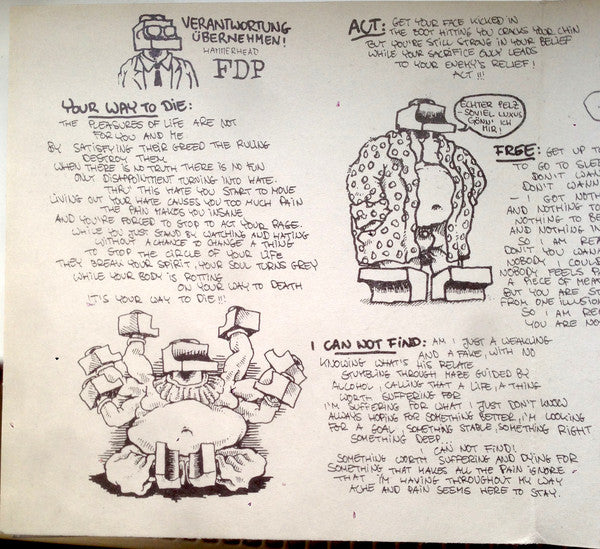 VERANTWORTUNG
ÜBERNEHMEN!
HAMMERHEAD
FDP
YOUR WAY TO DIE:
THE PLEASURES OF LIFE ARE NOT
FOR YOU AND ME
BY SATISFYING THEIR GREED THE RULING
DESTROY THEM
WHEN THERE IS NO TRUTH THERE IS NO FUN
ONLY DISAPPOINTMENT TURNING INTO HATE.
THRU THIS HATE YOU START TO MOVE
LIVING OUT YOUR HATE CAUSES YOU TOO MUCH PAIN
THE PAIN MAKES YOU INSANE
AND YOU'RE FORCED TO STOP TO ACT YOUR RAGE.
WHILE YOU JUST STAND BY WATCHING AND HATING
WITHOUT A CHANCE TO CHANGE A THING
TO STOP THE CIRCLE OF YOUR LIFE
THEY BREAK YOUR SPIRIT, YOUR SOUL TURNS GREY
WHILE YOUR BODY IS ROTTING
ON YOUR WAY TO DEATH
IT'S YOUR WAY TO DIE!!!
ACT: GET YOUR FACE KICKED IN
THE BOOT HITTING YOU CRACKS YOUR CHIN
BUT YOU'RE STILL STRONG IN YOUR BELIEF
WHILE YOUR SACRIFICE ONLY LEADS
TO YOUR ENEMY'S RELIEF!
ACT!!!
ECHTER PELZ
- SOVIEL LUXUS
GÖNN' ICH
MIR!
FREE: GET UP
TO GO TO
DON'T
DON'T
- I GOT
AND NOTHING
NOTHING TO
AND NOTHING
SO I AM
DON'T YOU
NOBODY I
NOBODY FEELS
A PIECE OF
BUT YOU ARE
FROM ONE
SO I AM
YOU ARE
I CAN NOT FIND: AM I JUST A WEAKLING
AND A FAKE, WITH NO
KNOWING WHAT'S HIS RELATE
GUZZLING THROUGH MAZE GUIDED BY
ALCOHOL, CALLING THAT A LIFE, A THING
WORTH SUFFERING FOR
I'M SUFFERING FOR WHAT I JUST DON'T KNOW
ALWAYS HOPING FOR SOMETHING BETTER, I'M LOOKING
FOR A GOAL, SOMETHING STABLE, SOMETHING RIGHT
SOMETHING DEEP
CAN NOT FIND!
SOMETHING WORTH SUFFERING AND DYING FOR
SOMETHING THAT MAKES ALL THE PAIN IGNORE -
THAT I'M HAVING THROUGHOUT MY WAY
ACHE AND PAIN SEEMS HERE TO STAY.